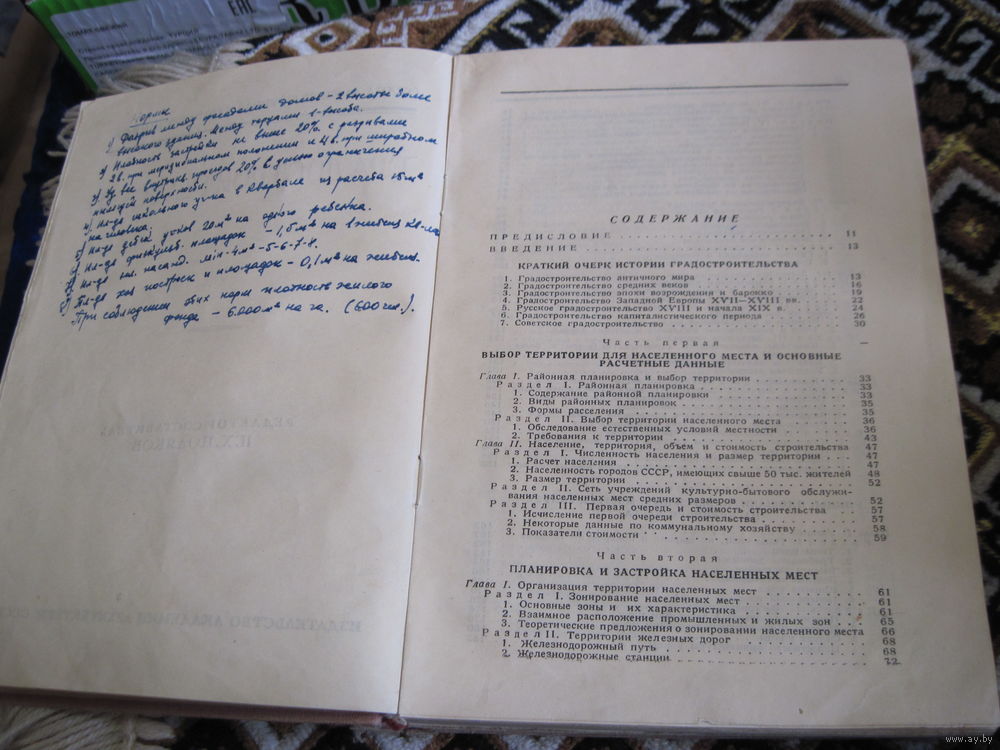 ТОВАР ОФИСНЫЙ
EAC
Нормы
1) Разрыв между фасадами домов - 2 высоты более
высокого здания. Между торцами 1-высота.
2) Плотность застройки не выше 20% с разрывами
2в. при меридиональном положении и 1/2 в. при широтном
3) Уд. вес внутрикв. проездов 20% в
поверхности.
4) Пл-дь школьного уч-ка в квартале из расчета 15м²
на человека.
5) Пл-дь детск. уч-ков 20м² на одного ребенка.
6) Пл-дь физкульт. площадок - 1,5м² на 1 жителя кв-ла
7) Пл-дь зел. насажд. min - 4м² - 5-6-7-8.
8) Пл-дь хоз. построек и площадок - 0,1м² на жителя.
При соблюдении этих норм плотность жилого
фонда - 6.000м² на га. (600 чел.).
СОДЕРЖАНИЕ
ПРЕДИСЛОВИЕ 11
ВВЕДЕНИЕ 13
КРАТКИЙ ОЧЕРК ИСТОРИИ ГРАДОСТРОИТЕЛЬСТВА
1. Градостроительство античного мира 13
2. Градостроительство средних веков 16
3. Градостроительство эпохи возрождения и барокко 19
4. Градостроительство Западной Европы XVII—XVIII вв. 22
5. Русское градостроительство XVIII и начала XIX в. 24
6. Градостроительство капиталистического периода 26
7. Советское градостроительство 30
Часть первая
ВЫБОР ТЕРРИТОРИИ ДЛЯ НАСЕЛЕННОГО МЕСТА И ОСНОВНЫЕ
РАСЧЕТНЫЕ ДАННЫЕ
Глава I. Районная планировка и выбор территории 33
Раздел I. Районная планировка 33
1. Содержание районной планировки 33
2. Виды районных планировок 35
3. Формы расселения 35
Раздел II. Выбор территории населенного места 36
1. Обследование естественных условий местности 36
2. Требования к территории 43
Глава II. Население, территория, объем и стоимость строительства 47
Раздел I. Численность населения и размер территории 47
1. Расчет населения 47
2. Населенность городов СССР, имеющих свыше 50 тыс. жителей 48
3. Размер территории 52
Раздел II. Сеть учреждений культурно-бытового обслужи-
вания населенных мест средних размеров 52
Раздел III. Первая очередь и стоимость строительства 57
1. Исчисление первой очереди строительства 57
2. Некоторые данные по коммунальному хозяйству 58
3. Показатели стоимости 59
Часть вторая
ПЛАНИРОВКА И ЗАСТРОЙКА НАСЕЛЕННЫХ МЕСТ
Глава I. Организация территории населенных мест 61
Раздел I. Зонирование населенных мест 61
1. Основные зоны и их характеристика 61
2. Взаимное расположение промышленных и жилых зон 65
3. Теоретические предложения о зонировании населенного места 66
Раздел II. Территории железных дорог 68
1. Железнодорожный путь 68
2. Железнодорожные станции 72
www.ay.by